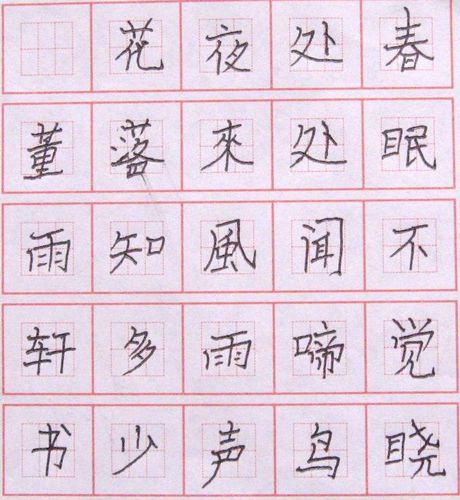 春眠不觉晓
处处闻啼鸟
夜來風雨声
花落知多少
董雨轩书